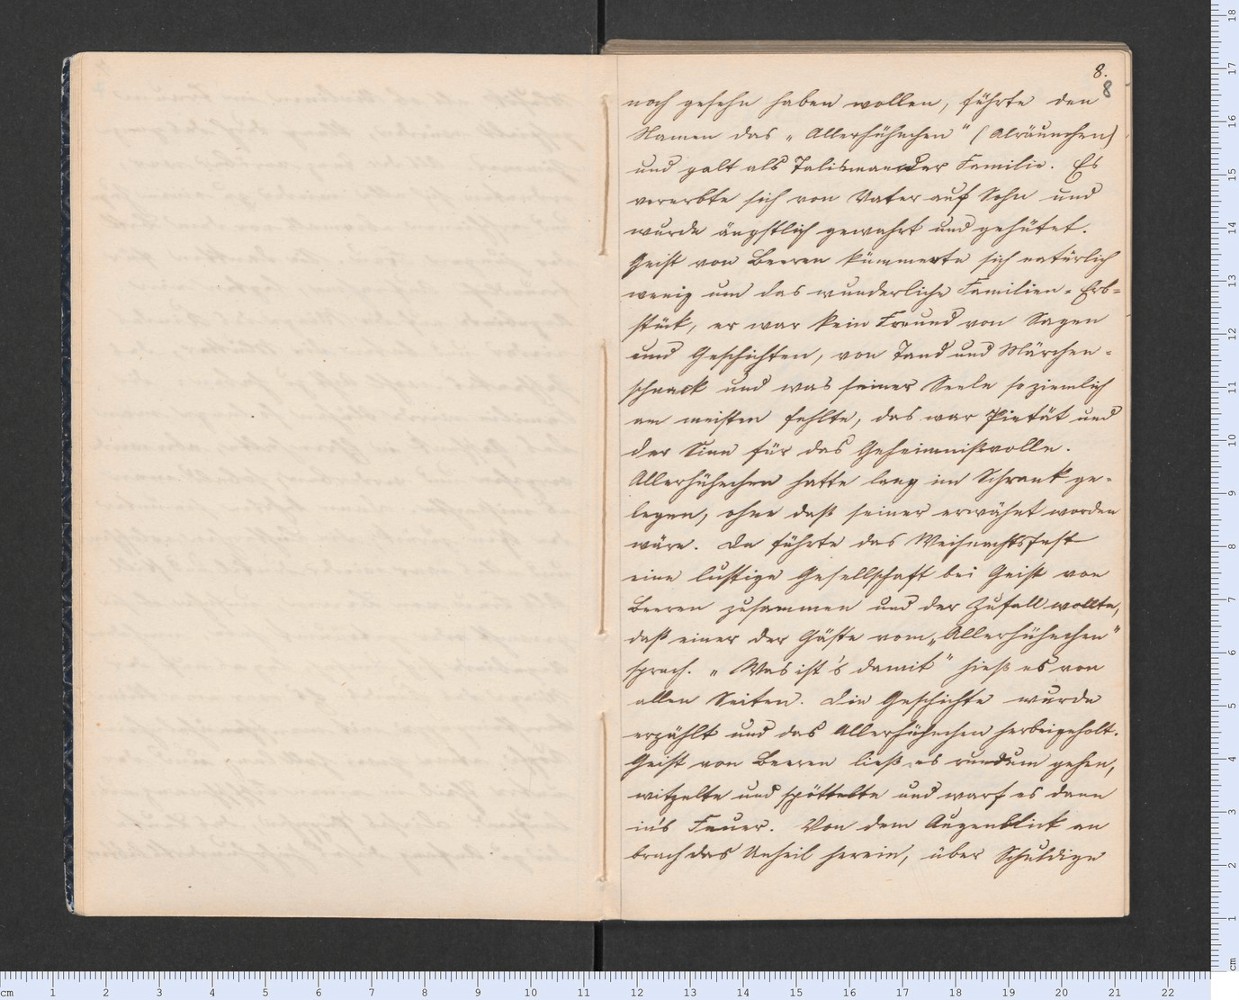 8.
8
noch gesehn haben wollen, führte den
Namen das „Allerhühnchen“ (Alräunchen)
und galt als Talisman der Familie. Es
vererbte sich von Vater auf Sohn und
wurde ängstlich gewahrt und gehütet.
Geist von Beeren kümmerte sich natürlich
wenig um das wunderliche Familien-Erb=
stück, er war kein Freund von Sagen
und Geschichten, von Tand und Märchen-
schnack und was seiner Seele so ziemlich
am meisten fehlte, das war Pietät und
der Sinn für das Geheimnißvolle.
Allerhühnchen hatte lang im Schrank ge-
legen, ohne daß seiner erwähnt worden
wäre. Da führte das Weihnachtsfest
eine lustige Gesellschaft bei Geist von
Beeren zusammen und der Zufall wollte,
daß einer der Gäste vom „Allerhühnchen“
sprach. „Was ist's damit“ hieß es von
allen Seiten. Die Geschichte wurde
erzählt und das Allerhühnchen herbeigeholt.
Geist von Beeren ließ es rundum gehen,
witzelte und spöttelte und warf es dann
in's Feuer. Von dem Augenblick an
brach das Unheil herein, über Schuldige